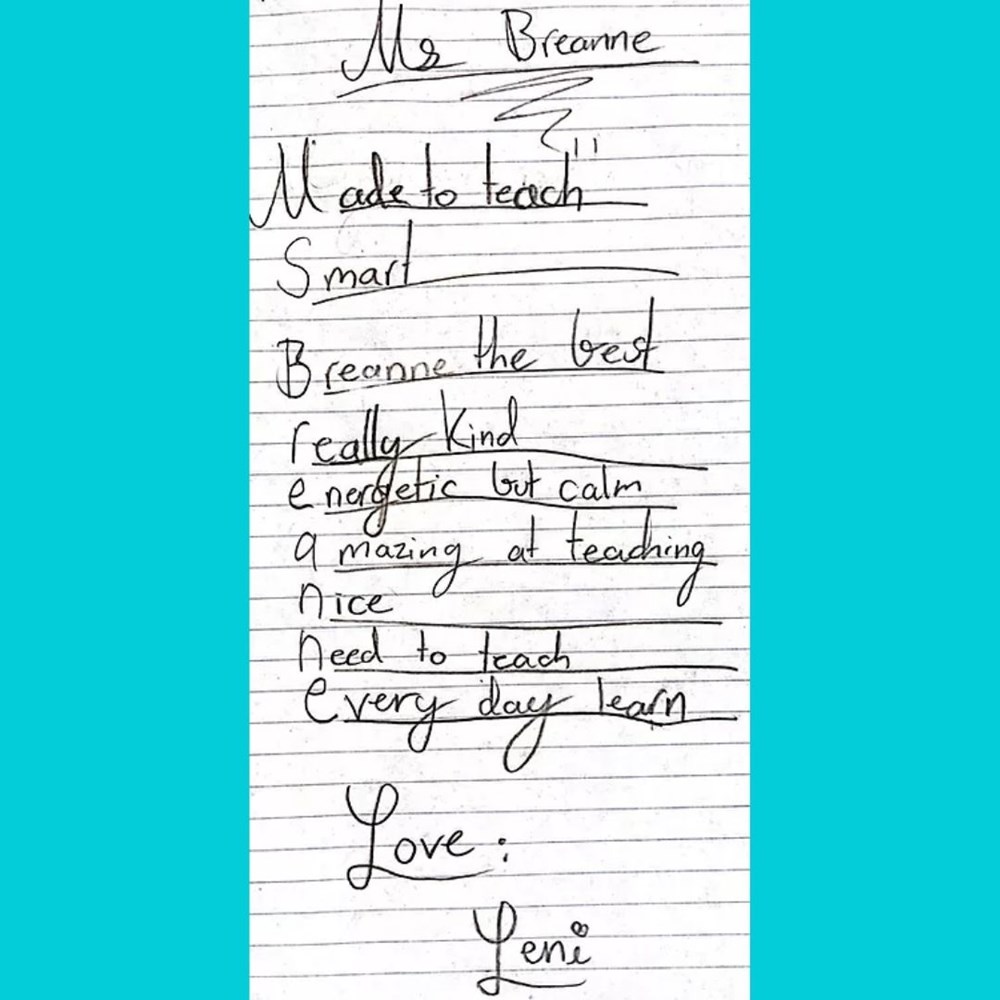 Ms Breanne
Made to teach
Smart
Breanne the best
really kind
energetic but calm
amazing at teaching
nice
need to teach
every day learn
Love:
Leni